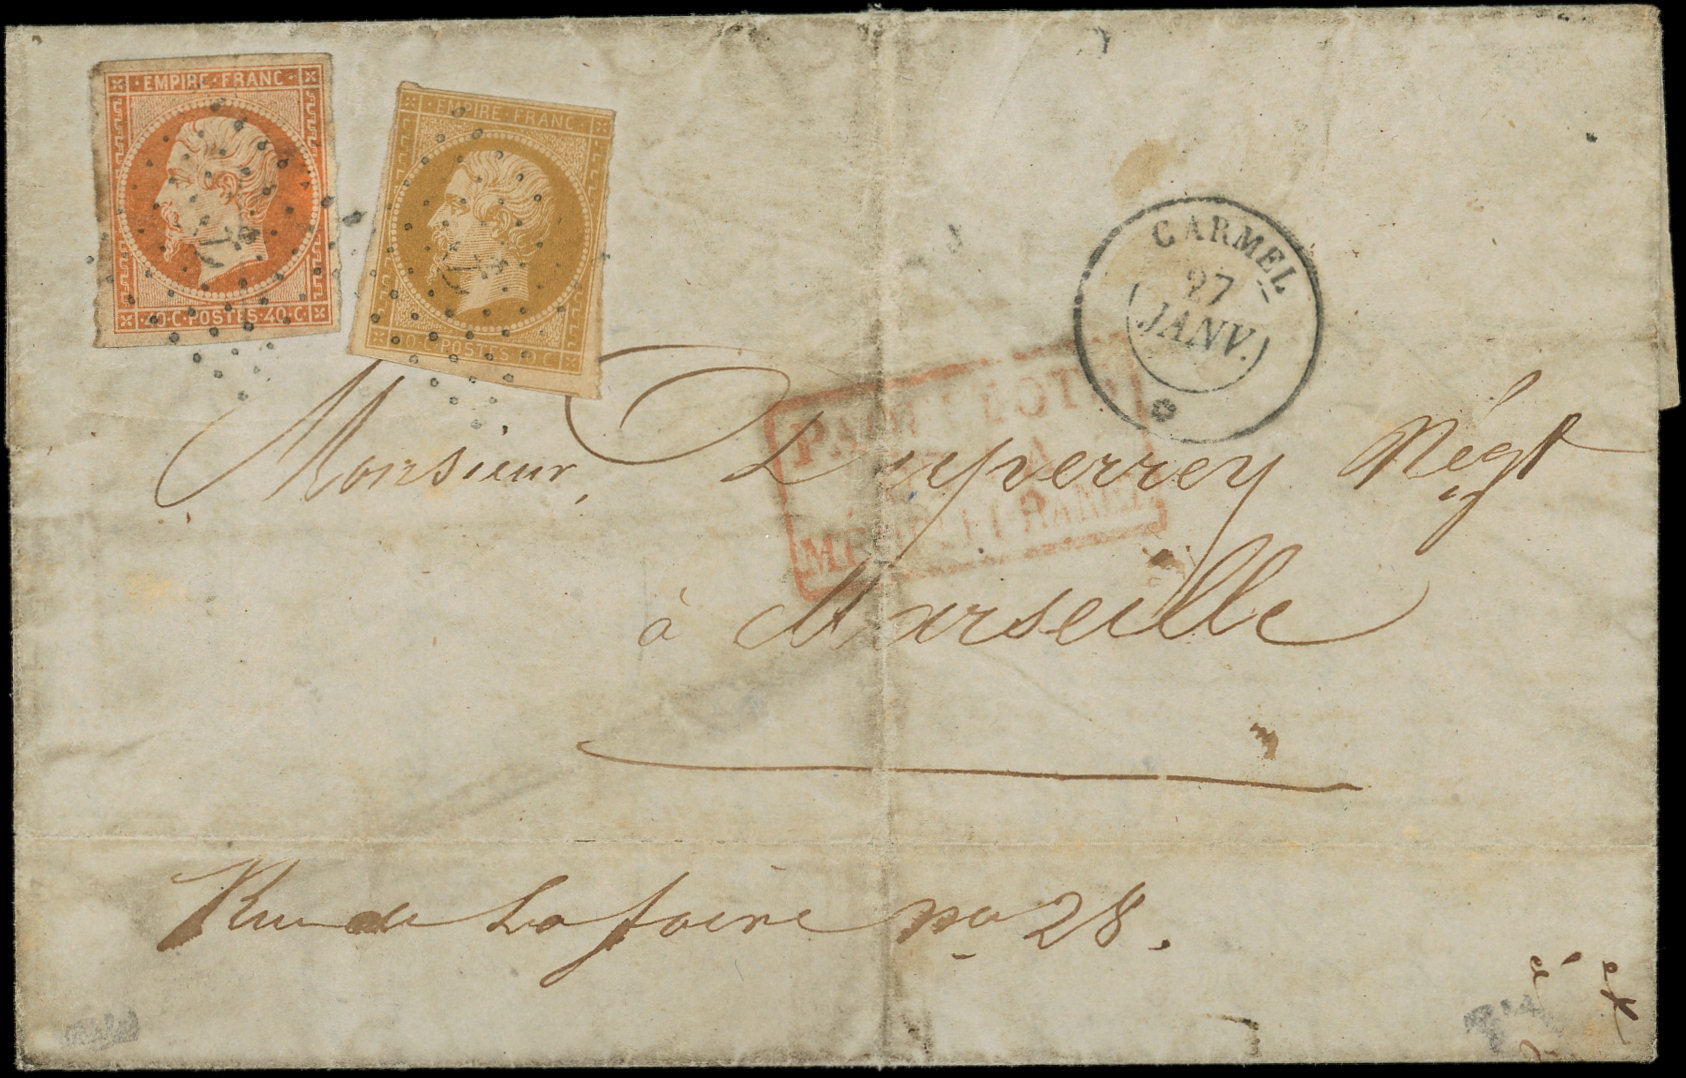 EMPIRE · FRANC ·
40 · C · POSTES · 40 · C
EMPIRE · FRANC ·
10 · C · POSTES · 10 · C
CARMEL
27
JANV.
Monsieur, Duperrey Négt
à Marseille
Rue de La foire no 28.
et
à